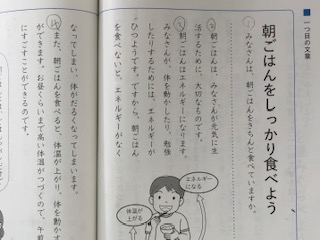 一つ目の文章
朝ごはんをしっかり食べよう
① みなさんは、朝ごはんをきちんと食べていますか。
② 朝ごはんは、みなさんが元気に生
活するために、大切なものです。
③ 朝ごはんはエネルギーになります。
みなさんが、体を動かしたり、勉強
したりするためには、エネルギーが
ひつようです。ですから、朝ごはん
を食べないと、エネルギーがなく
なってしまい、体がだるくなってしまいます。
④ また、朝ごはんを食べると、体温が上がり、体を動かす
ができます。お昼くらいまで高い体温がつづくので、午前
にすごすことができるのです。
エネルギー
になる
体温が
上がる